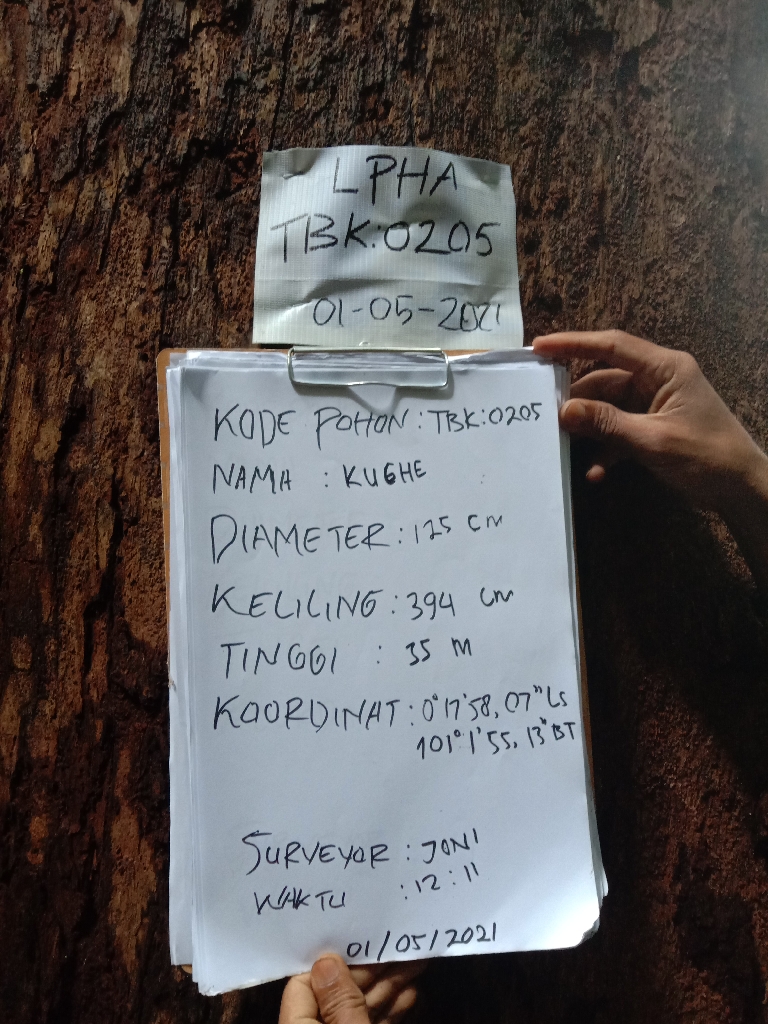 LPHA
TBK:0205
01-05-2021
KODE POHON : TBK:0205
NAMA : KUGHE
DIAMETER : 125 cm
KELILING : 394 cm
TINGGI : 35 M
KOORDINAT : 0°17'58,07" LS
101°1'55,13" BT
SURVEYOR : JONI
WAKTU : 12:11
01/05/2021